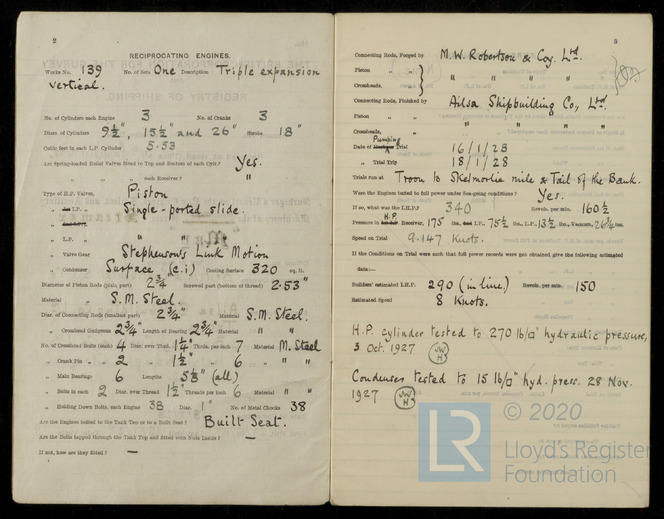 2
RECIPROCATING ENGINES.
Works No. 139 No. of Sets One Description Triple expansion
vertical.
No. of Cylinders each Engine 3 No. of Cranks 3
Diars. of Cylinders 9½", 15½" and 26" Stroke 18"
Cubic feet in each L.P. Cylinder 5.53
Are Spring-loaded Relief Valves fitted to Top and Bottom of each Cylr.? Yes.
" " " each Receiver? "
Type of H.P. Valves, Piston
" 1st I.P. " Single-ported slide.
" "
" L.P. " " " "
" Valve Gear Stephenson's Link Motion
" Condenser Surface (C.I) Cooling Surface 320 sq. ft.
Diameter of Piston Rods (plain part) 2¾" Screwed part (bottom of thread) 2.53"
Material " S.M. Steel.
Diar. of Connecting Rods (smallest part) 2¾" Material S.M. Steel.
" Crosshead Gudgeons 2¾" Length of Bearing 2¾" Material " "
No. of Crosshead Bolts (each) 4 Diar. over Thrd. 1¼" Thrds. per inch 7 Material M. Steel
" Crank Pin " " 2 " 1½" " 6 " " "
" Main Bearings 6 Lengths 5⅛" (all)
" Bolts in each 2 Diar. over Thread 1½" Threads per inch 6 Material " "
" Holding Down Bolts, each Engine 38 Diar. 1" No. of Metal Chocks 38
Are the Engines bolted to the Tank Top or to a Built Seat? Built Seat.
Are the Bolts tapped through the Tank Top and fitted with Nuts Inside? —
If not, how are they fitted? —
3
Connecting Rods, Forged by M. W. Robertson & Coy. Ltd.
Piston " " " " " "
Crossheads, "
Connecting Rods, Finished by Ailsa Shipbuilding Co., Ltd.
Piston " " " " "
Crossheads, " " " "
Pumping
Date of Harbour Trial 16/1/28
" Trial Trip 18/1/28
Trials run at Troon to Skelmorlie mile & Tail of the Bank.
Were the Engines tested to full power under Sea-going conditions? Yes.
If so, what was the I.H.P.? 340 Revols. per min. 160½
H.P.
Pressure in Receiver, 175 lbs. I.P. 75½ lbs., L.P. 13½ lbs., Vacuum, 26¾ ins.
Speed on Trial 9.147 Knots.
If the Conditions on Trial were such that full power records were not obtained give the following estimated
data:—
Builders' estimated I.H.P. 290 (in line.) Revols. per min. 150
Estimated Speed 8 Knots.
H.P. cylinder tested to 270 lb/□" hydraulic pressure,
3 Oct. 1927 JWH
Condenser tested to 15 lb/□" hyd. press. 28 Nov.
1927 JWH
© 2020
LR
Lloyd's Register
Foundation